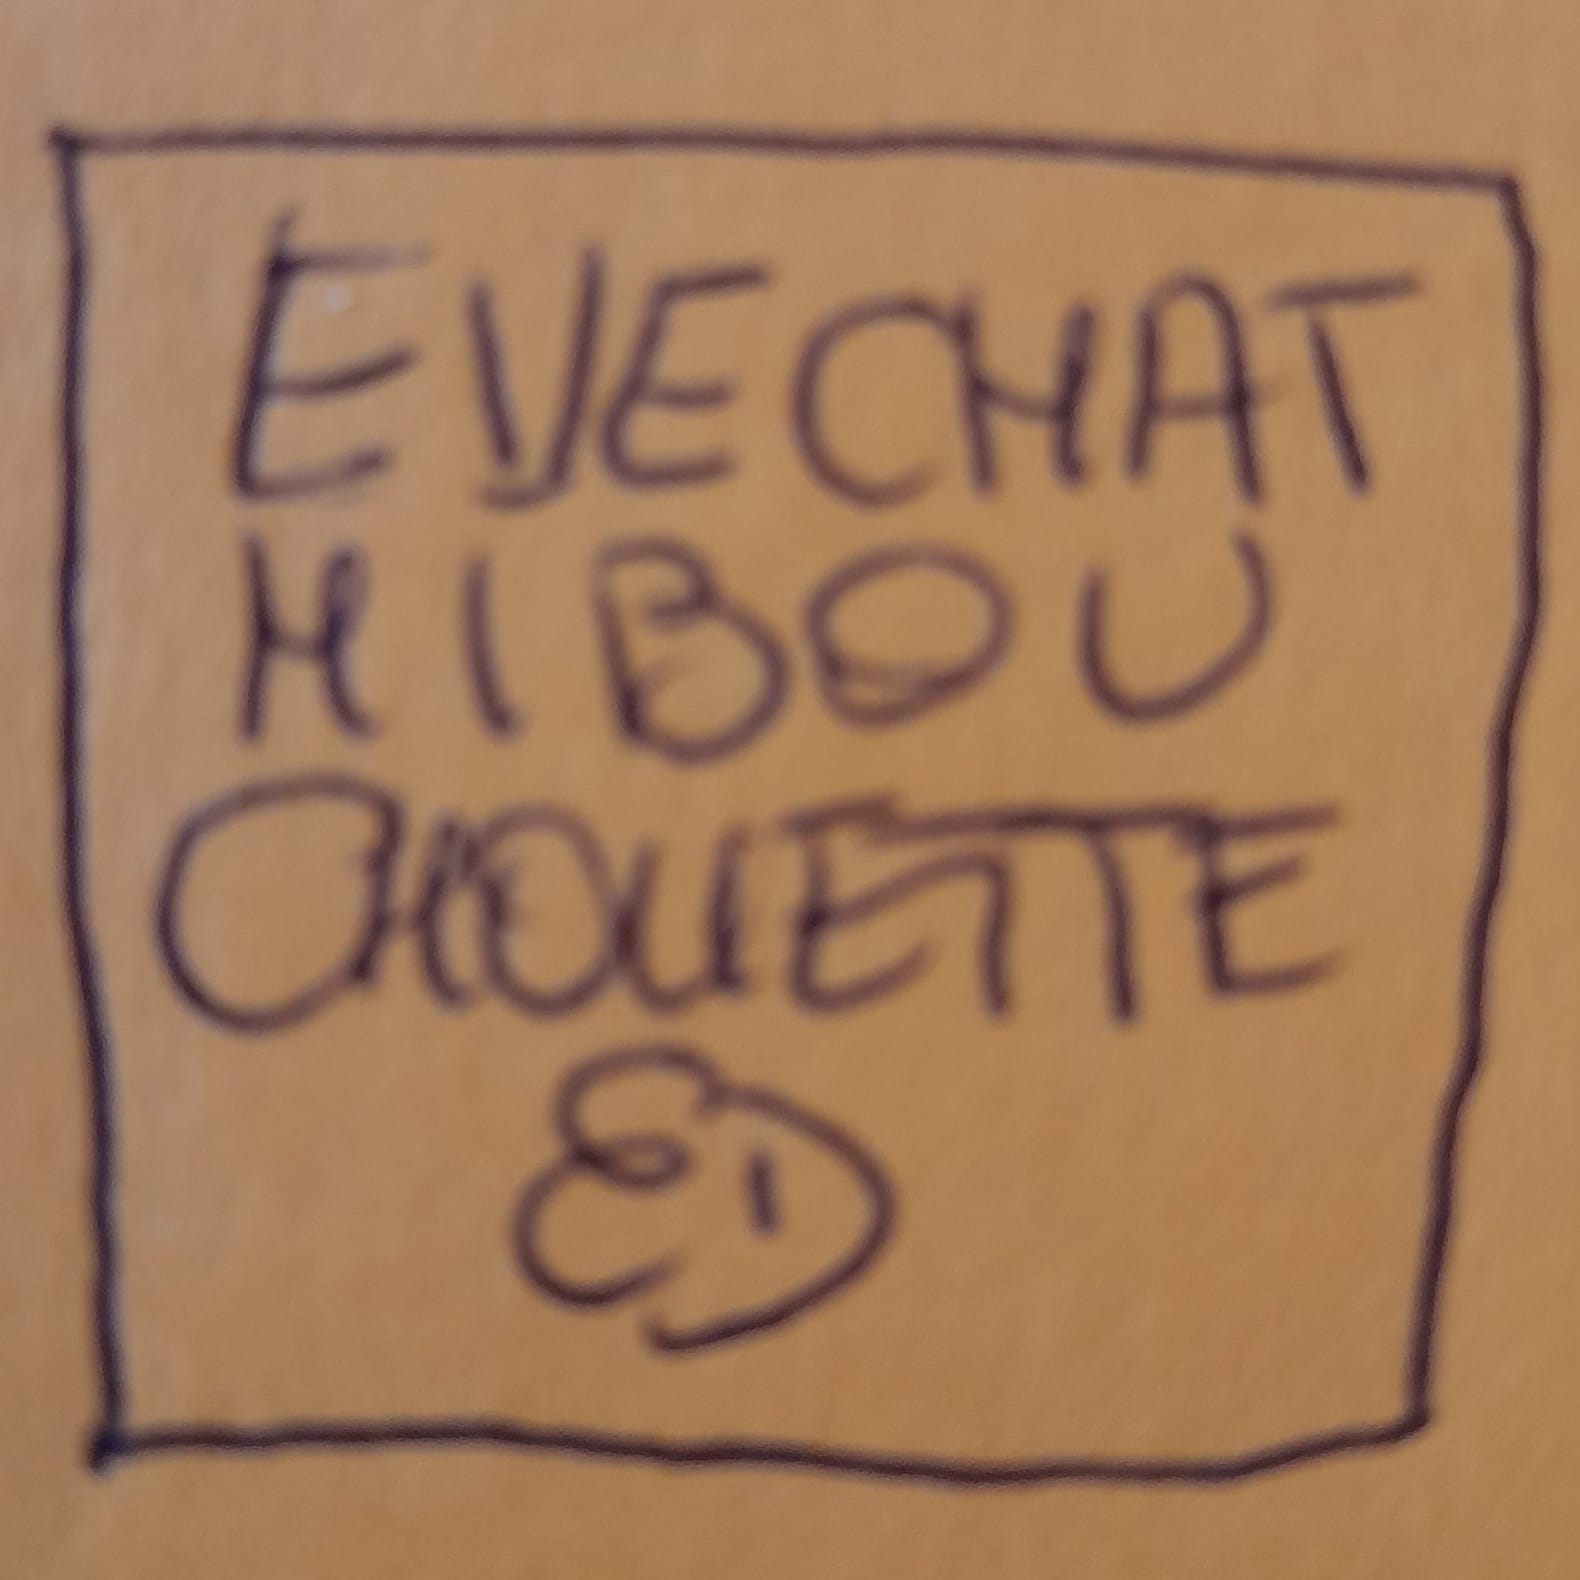 EVECHAT
HIBOU
CHOUETTE
ED